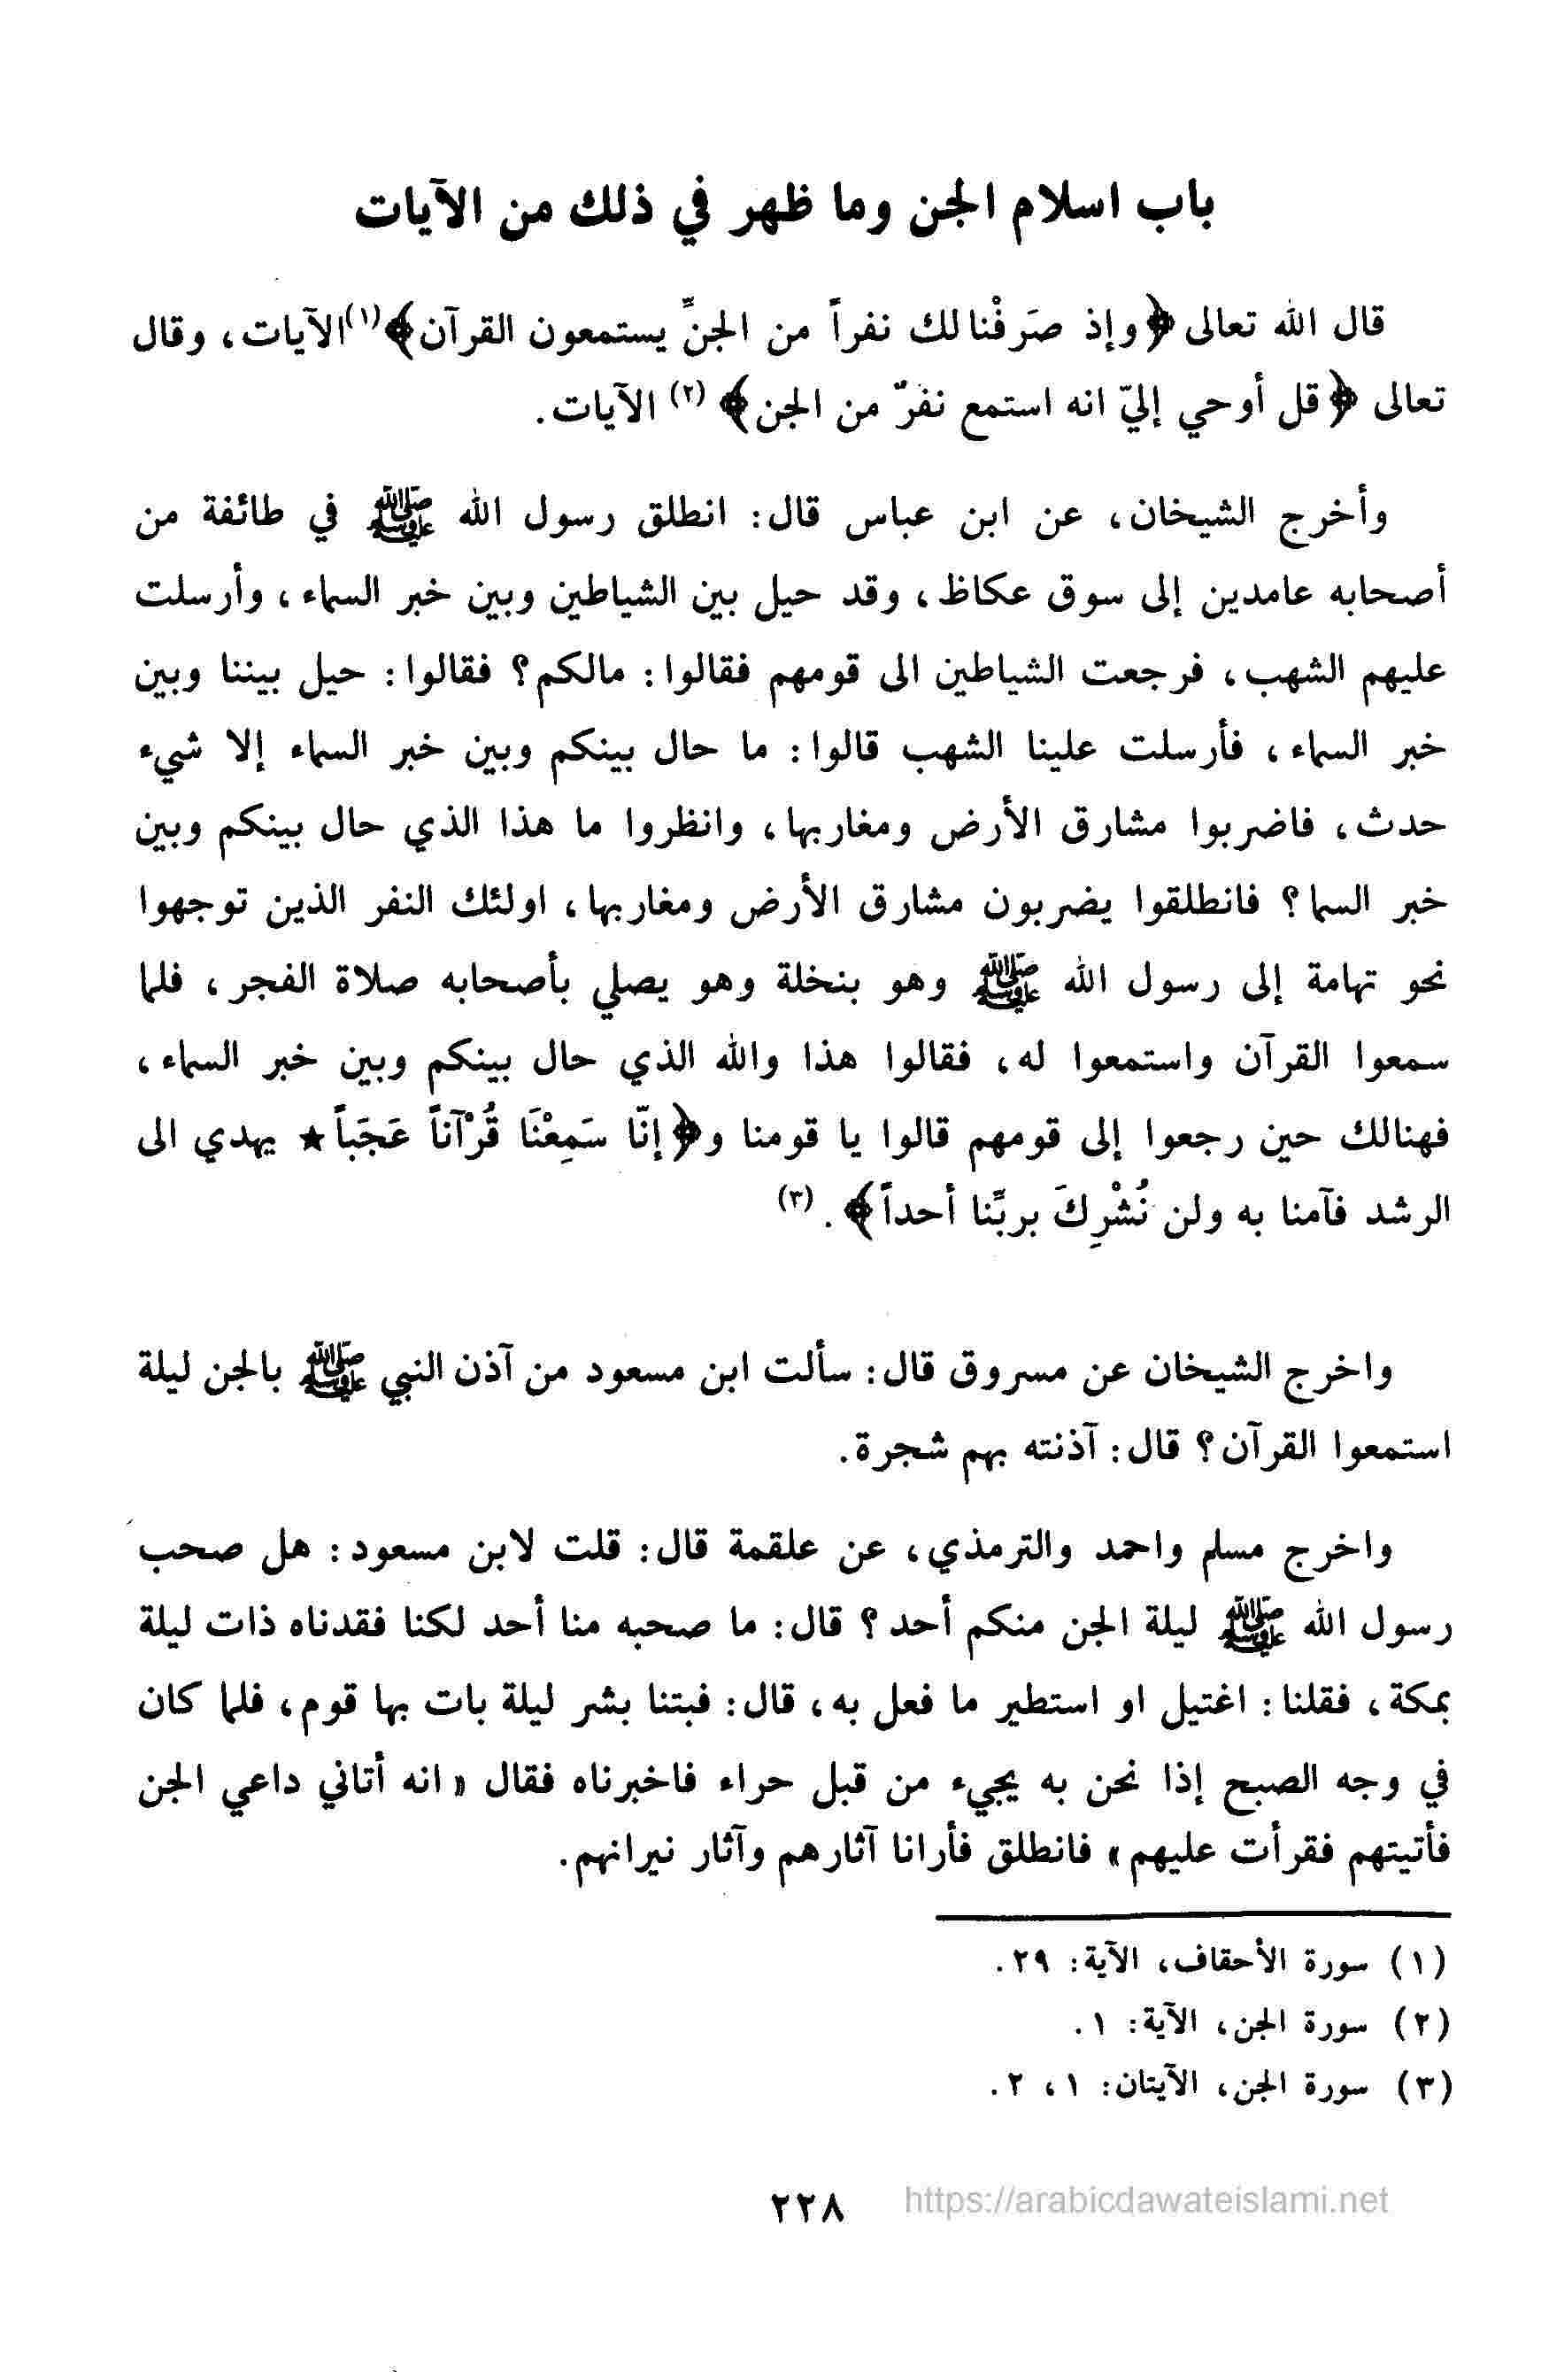 باب اسلام الجن وما ظهر في ذلك من الآيات
قال الله تعالى ﴿وإذ صَرفْنا لك نفراً من الجنِّ يستمعون القرآن﴾(١) الآيات، وقال
تعالى ﴿قل أوحي إليّ انه استمع نفرٌ من الجن﴾ (٢) الآيات.
وأخرج الشيخان، عن ابن عباس قال: انطلق رسول الله ﷺ في طائفة من
أصحابه عامدين إلى سوق عكاظ، وقد حيل بين الشياطين وبين خبر السماء، وأرسلت
عليهم الشهب، فرجعت الشياطين الى قومهم فقالوا: مالكم؟ فقالوا: حيل بيننا وبين
خبر السماء، فأرسلت علينا الشهب قالوا: ما حال بينكم وبين خبر السماء إلا شيء
حدث، فاضربوا مشارق الأرض ومغاربها، وانظروا ما هذا الذي حال بينكم وبين
خبر السما؟ فانطلقوا يضربون مشارق الأرض ومغاربها، اولئك النفر الذين توجهوا
نحو تهامة إلى رسول الله ﷺ وهو بنخلة وهو يصلي بأصحابه صلاة الفجر، فلما
سمعوا القرآن واستمعوا له، فقالوا هذا والله الذي حال بينكم وبين خبر السماء،
فهنالك حين رجعوا إلى قومهم قالوا يا قومنا و﴿إنّا سَمِعْنَا قُرْآناً عَجَباً ★ يهدي الى
الرشد فآمنا به ولن نُشْرِكَ بربِّنا أحداً﴾. (٣)
واخرج الشيخان عن مسروق قال: سألت ابن مسعود من آذن النبي ﷺ بالجن ليلة
استمعوا القرآن؟ قال: آذنته بهم شجرة.
واخرج مسلم واحمد والترمذي، عن علقمة قال: قلت لابن مسعود: هل صحب
رسول الله ﷺ ليلة الجن منكم أحد؟ قال: ما صحبه منا أحد لكنا فقدناه ذات ليلة
بمكة، فقلنا: اغتيل او استطير ما فعل به، قال: فبتنا بشر ليلة بات بها قوم، فلما كان
في وجه الصبح إذا نحن به يجيء من قبل حراء فاخبرناه فقال «انه أتاني داعي الجن
فأتيتهم فقرأت عليهم» فانطلق فأرانا آثارهم وآثار نيرانهم.
(١) سورة الأحقاف، الآية: ٢٩.
(٢) سورة الجن، الآية: ١.
(٣) سورة الجن، الآيتان: ١، ٢.
٢٢٨ https://arabicdawateislami.net